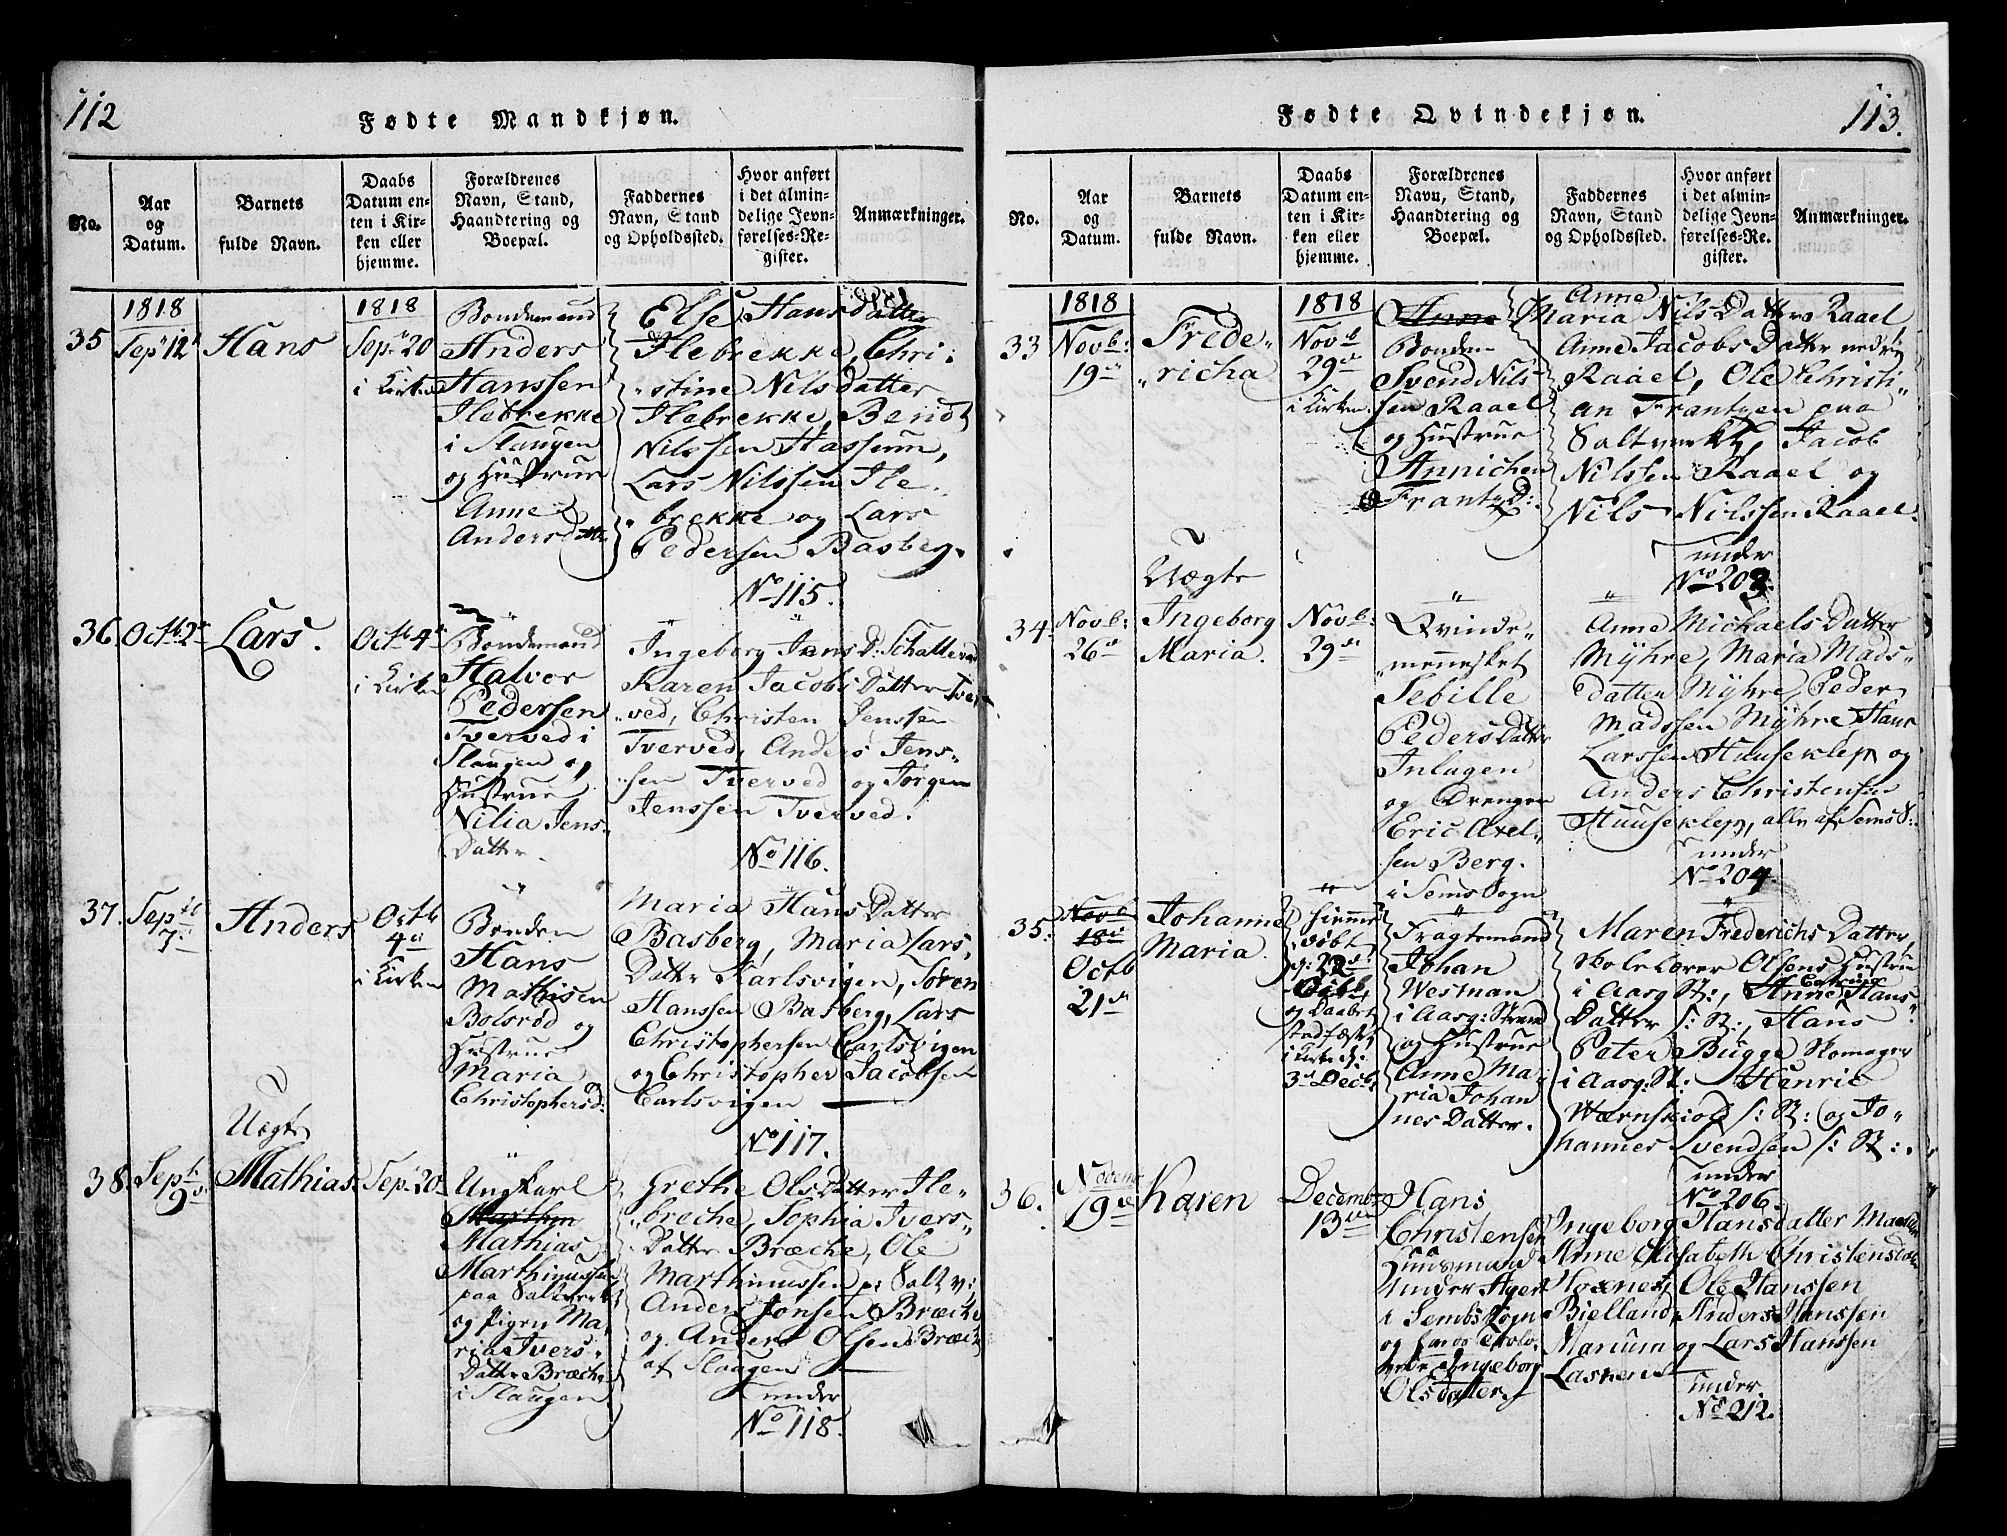 112
Fødte Mandkjøn.
No.
Aar
og
Datum.
Barnets
fulde Navn.
Daabs
Datum en-
ten i Kir-
ken eller
hjemme.
Forældrenes
Navn, Stand,
Haandtering og
Boepæl.
Faddernes
Navn, Stand
og Opholdssted.
Hvor anført
i det almin-
delige Jevn-
førelses-Re-
gister.
Anmærkninger.
35
1818
Sepr 12
Hans
1818
Sepr 20
i Kirken
Bondemand
Anders
Hanssen
Ilebrekke
i Slaugen
og Hustrue
Anne
Andersdatter
Else Hansdatter
Ilebrekke, Chri-
stine Nilsdatter
Ilebrekke, Bendt
Nilssen Hassum,
Lars Nilssen Ile-
brekke og Lars
Pedersen Basberg.
No 115.
36.
Octb 2de
Lars.
Octb 4de
i Kirken
Bondemand
Halvor
Pedersen
Tverved i
Slaugen og
Hustrue
Nilia Jens
Datter.
Ingeborg Jans D: Schatteved
Karen Jacobs Datter Tver-
ved, Christen Jenssen
Tverved, Anders Jens-
sen Tverved og Jørgen
Jenssen Tverved.
No 116.
37.
Septb
7.
Anders
Octb
4de
i Kirken
Bonden
Hans
Mathisen
Bolsrød og
Hustrue
Maria
Christophersd:
Maria Hans Datter
Basberg, Maria Lars
Datter Karlsvigen, Søren
Hanssen Basberg, Lars
Christophersen Carlsvigen
og Christopher Jacobsen
Carlsvigen
No 117.
38.
Septb
9de
Uægte
Mathias
Sepr 20
Ungkarl
Marthin
Mathias
Marthinussen
paa Saltverket
og Pigen Ma-
ria Ivers
Datter Bræche
i Slaugen
Grethe Ols Datter Ile-
breche, Sophia Ivers
Datter Bræche, Ole
Marthinussen p: Saltv:
Anders Jonsen Bræche
og Anders Olsen Bræche
af Slaugen
under
No 118.
113.
Fødte Qvindekjøn.
No.
Aar
og
Datum.
Barnets
fulde Navn.
Daabs
Datum en-
ten i Kir-
ken eller
hjemme.
Forældrenes
Navn, Stand,
Haandtering og
Boepæl.
Faddernes
Navn, Stand
og Opholdssted.
Hvor anført
i det almin-
delige Jevn-
førelses-Re-
gister.
Anmærkninger.
33
1818
Novb:
19de
Frede-
richa
1818
Novb
29de
i Kirken
Anne
Bonden
Svend Nils-
sen Raael
og Hustrue
Annichen
Frantz D:
Anne
Maria Nils Datter Raael
Anne Jacobs Datter nedrig
Raael, Ole Christi-
an Frantzen paa
Saltverkt, Jacob
Nilssen Raael og
Nils Nilssen Raael.
under
No 203.
34.
Novb:
26de
Uægte
Ingeborg
Maria.
Novb:
29de
Qvinde-
mennesket
Sebille
Peders Datter
Inlagen
og Drengen
Eric Axel-
sen Berg.
i Sems Sogn
Anne Michaels Datter
Myhre, Maria Mads-
datter Myhre, Peder
Madssen Myhre, Hans
Larssen Huuseklep og
Anders Christensen
Huuseklep, alle af Sems S:
under
No 204.
35.
Novb
18de
Octb
21de
Johanne
Maria.
hiemme
døbt
d: 22de
Octb
og Daabet
stadfæstet
i Kirke d:
3de Decb.
Fragtemand
Johan
Westman
i Aasg: Strand
og Hustrue
Anne Ma-
ria Johan
nes Datter.
Maren Frederichs Datter,
Skolelærer Olsens Hustrue
Cathrine
i Aasg St:, Anne Hans
Datter s: St:, Hans
Peter Bugge Skomager
i Aasg: St: Henric
Wærnskiold s: St: og Jo-
hannes Svendsen s: St:.
under
No 206.
36.
Novembr
19de
Karen
Decembr
13de
Hans
Christensen
Huusmand
under Ager
i Sembs Sogn
og Ingeborg
Olsdatter.
Ingeborg Hansdatter
Anne Elisabeth Christensdatter
Ole Hanssen
Bielland, Anders Hanssen
Marium og Lars Hanssen
Lasken
under
No 212.